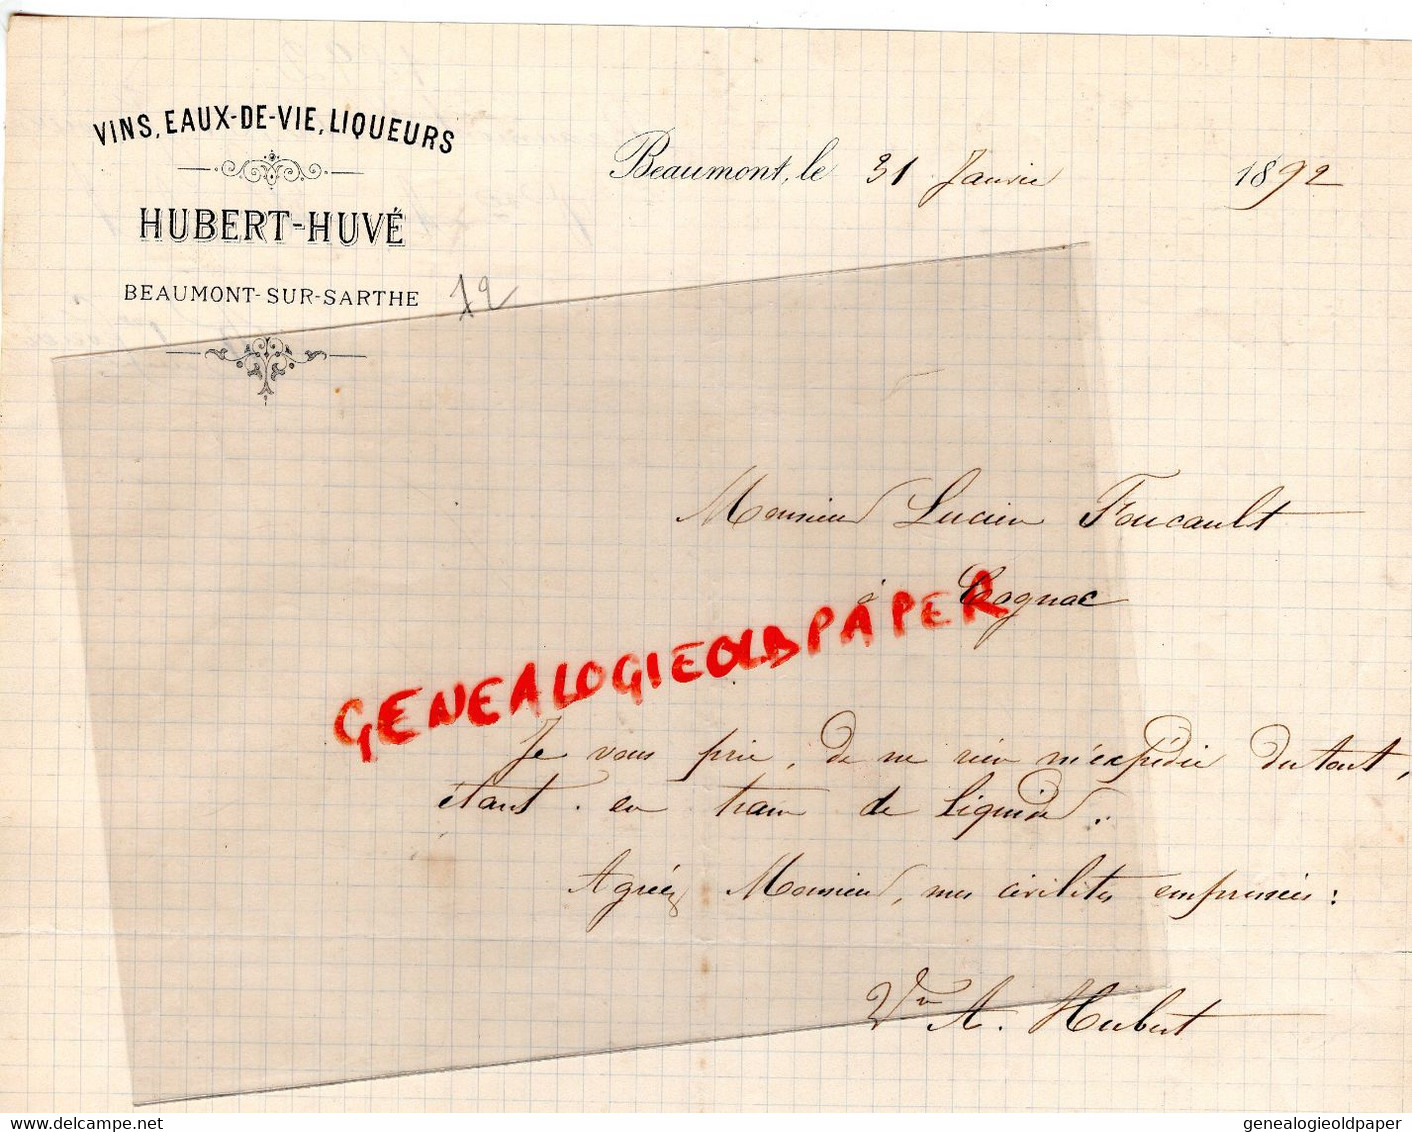 VINS, EAUX-DE-VIE, LIQUEURS
HUBERT-HUVÉ
BEAUMONT-SUR-SARTHE 72
Beaumont, le 31 Janvier 1892
Monsieur Lucien Foucault
à Cognac
GENEALOGIEOLDPAPER
Je vous prie, de ne rien m'expédier du tout,
étant en train de liquider.
Agréez Monsieur, mes civilités empressées:
Vve A. Hubert
genealogieoldpaper